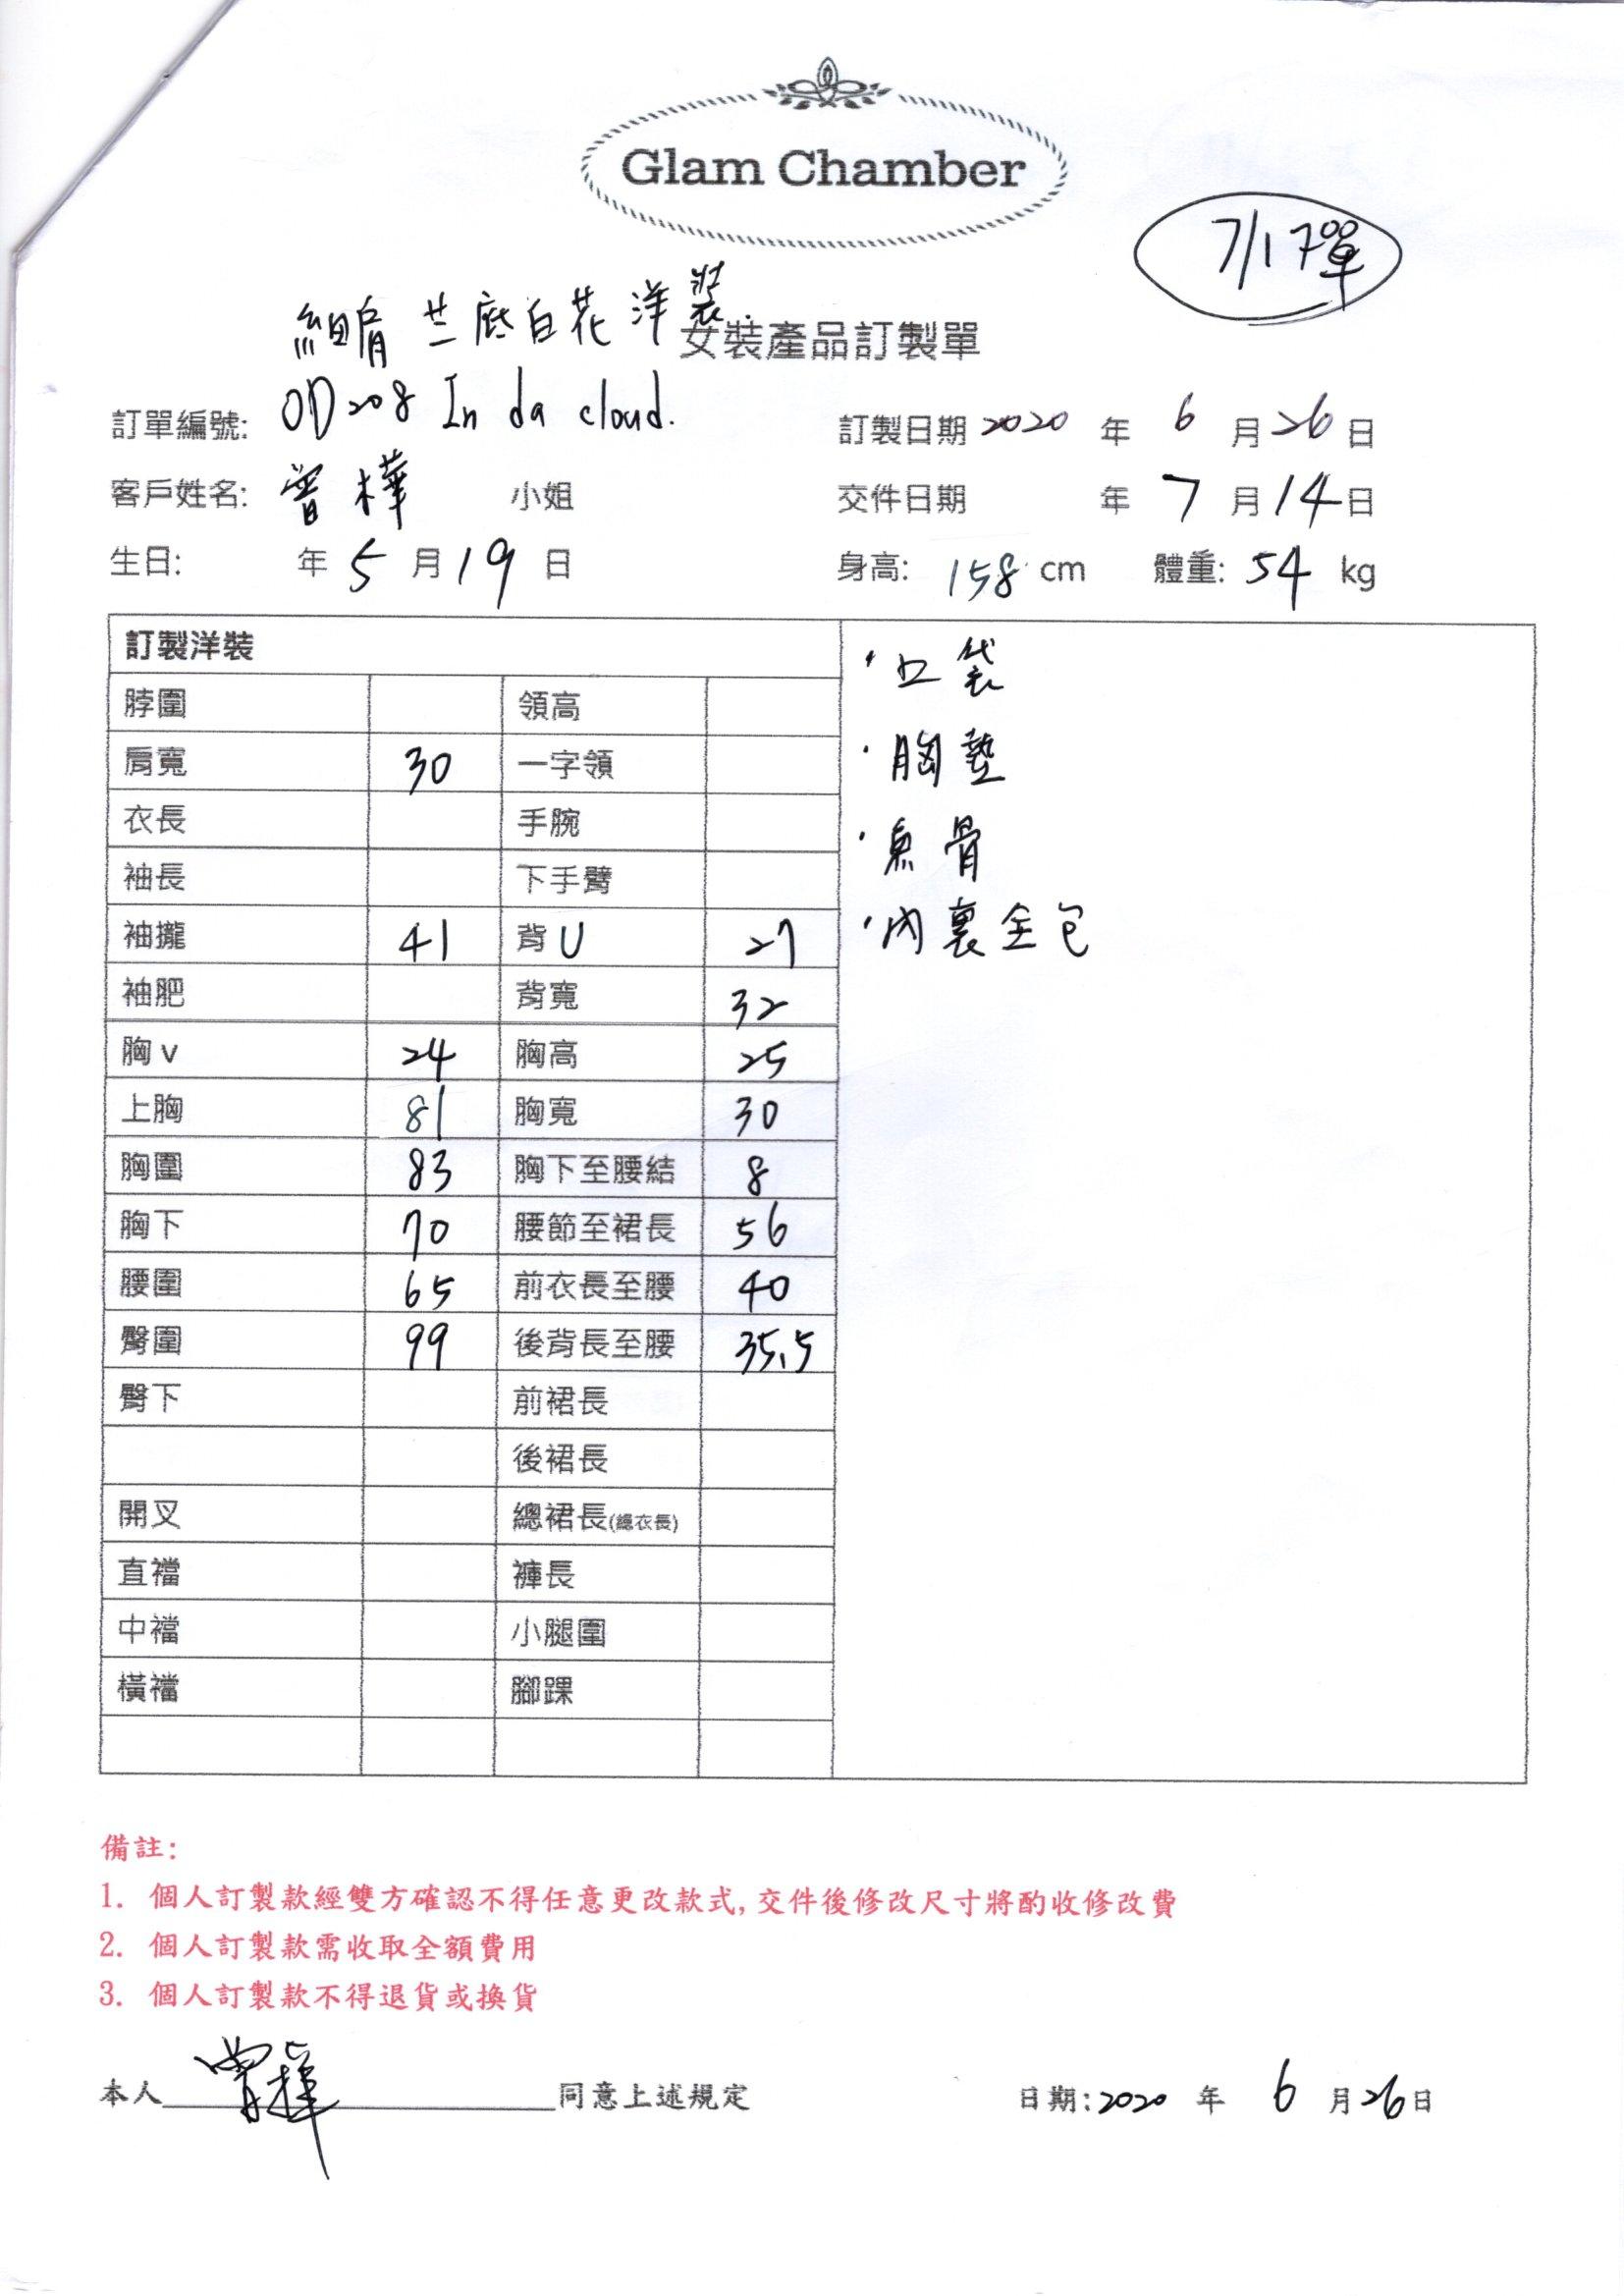 Glam Chamber
7/17單
細肩 芏底白花洋裝.
女裝產品訂製單
訂單編號: OD208 In da cloud.
訂製日期 2020 年 6 月 26 日
客戶姓名: 曾樺 小姐
交件日期 年 7 月 14 日
生日: 年 5 月 19 日
身高: 158 cm 體重: 54 kg
訂製洋裝
脖圍 領高
肩寬 30 一字領
衣長 手腕
袖長 下手臂
袖攏 41 背U 27
袖肥 背寬 32
胸v 24 胸高 25
上胸 81 胸寬 30
胸圍 83 胸下至腰結 8
胸下 70 腰節至裙長 56
腰圍 65 前衣長至腰 40
臀圍 99 後背長至腰 35.5
臀下 前裙長
後裙長
開叉 總裙長(總衣長)
直襠 褲長
中襠 小腿圍
橫襠 腳踝
·袋
·胸墊
·魚骨
·內裏全包
備註:
1. 個人訂製款經雙方確認不得任意更改款式, 交件後修改尺寸將酌收修改費
2. 個人訂製款需收取全額費用
3. 個人訂製款不得退貨或換貨
本人 曾樺 同意上述規定
日期: 2020 年 6 月 26 日